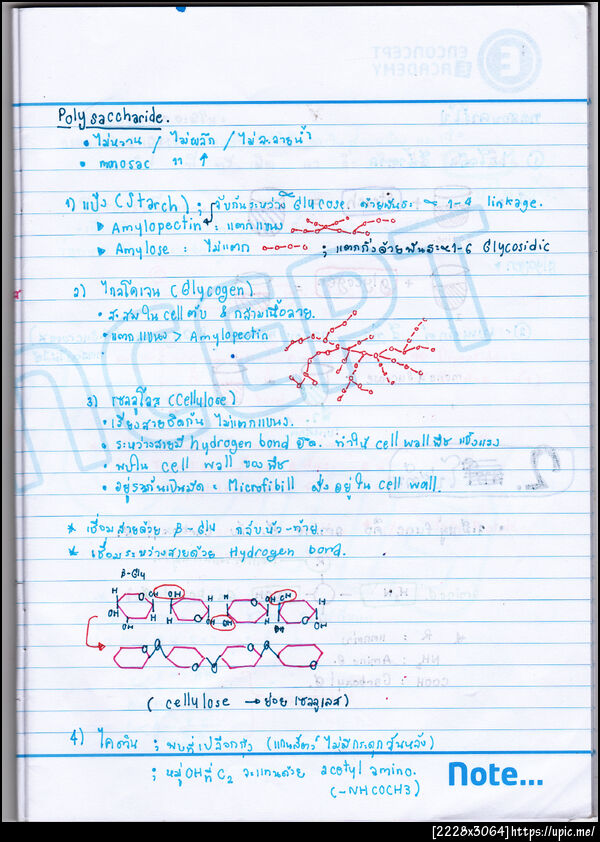 ENCONCEPT
E ACADEMY
Polysaccharide.
• ไม่หวาน / ไม่ผลึก / ไม่ละลายน้ำ
• monosac ๆๆ ↑
1) แป้ง (Starch) ; จับกันระหว่าง Glycose. ด้วยพันธะ α 1-4 linkage.
▶ Amylopectin : แตกแขนง
▶ Amylose : ไม่แตก ; แตกกิ่งด้วยพันธะ α1-6 Glycosidic
2) ไกลโคเจน (Glycogen)
• สะสมใน cell ตับ & กล้ามเนื้อลาย.
• แตกแขนง > Amylopectin
3) เซลลูโลส (Cellylose)
• เรียงสายชิดกัน ไม่แตกแขนง.
• ระหว่างสายมี hydrogen bond ยึด. ทำให้ cell wall พืช แข็งแรง
• พบใน cell wall ของพืช
• อยู่รวมกันเป็นมัด = Microfibill ฝังอยู่ใน cell wall.
* เชื่อมสายด้วย β-Glu กลับหัว-ท้าย
* เชื่อมระหว่างสายด้วย Hydrogen bond.
β-Gly
H OH OH H H OH OH H
OH OH H OH OH
O O O O
(cellylose → ย่อย เซลลูเลส)
4) ไคติน ; พบที่เปลือกกุ้ง (แกนสัตว์ ไม่มีกระดูกสันหลัง)
; หมู่ OH ที่ C2 จะแทนด้วย acetyl amino.
(-NHCOCH3)
Note...
[2228x3064]https://upic.me/